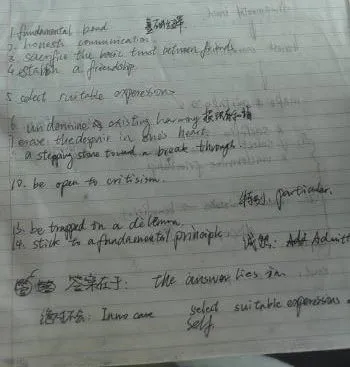 1. fundamental bond
2. honest communication
3. sacrifice the basic trust between friends
4. establish a friendship
5. select suitable expressions
6. undermine existing harmony
7. erase the despair in one's heart
a stepping stone toward a break-through
10. be open to critisism.
特别, particular.
13. be trapped in a dilemma.
14. stick to a fundamental principle
Admitt
答案在于: the answer lies in
绝对不会: In no case select suitable expressions
self